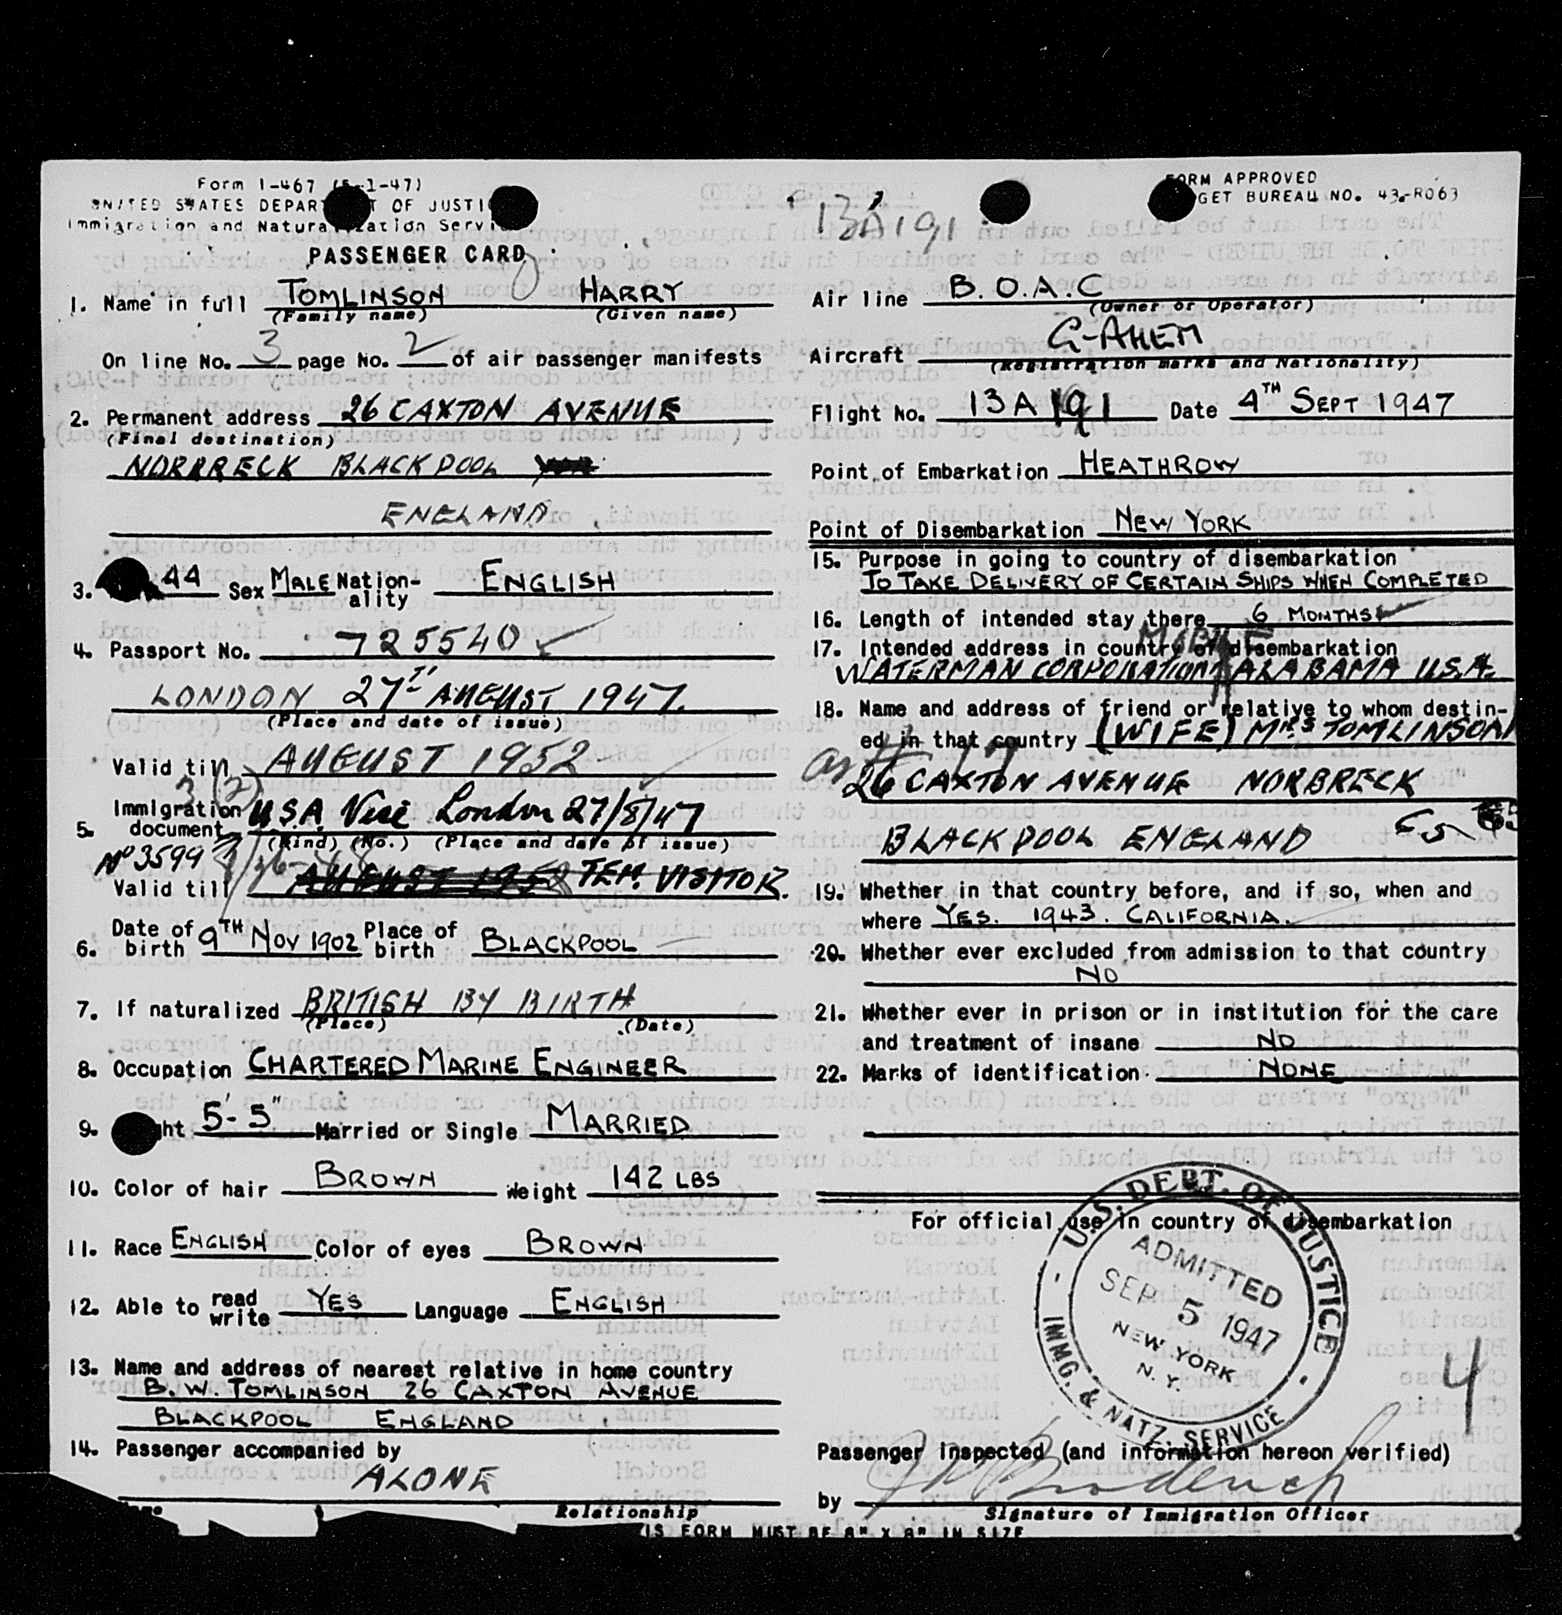 Form I-467 (5-1-47)
UNITED STATES DEPAR T OF JUSTI
Immigration and Naturalization Servi
PASSENGER CARD
13A191
FORM APPROVED
GET BUREAU NO. 43-R063
1. Name in full TOMLINSON HARRY
(Family name) (Given name)
On line No. 3 page No. 2 of air passenger manifests
2. Permanent address 26 CAXTON AVENUE
(Final destination)
NORBRECK BLACKPOOL
ENGLAND
3. 44 Sex MALE Nation-ality ENGLISH
4. Passport No. 725540
LONDON 27TH AUGUST 1947.
(Place and date of issue)
Valid till AUGUST 1952
3(2)
5. Immigration document U.S.A. Vise London 27/8/47
(Kind) (No.) (Place and date of issue)
No 3599
Valid till AUGUST 1952 TEM. VISITOR.
6. Date of birth 9TH NOV 1902 Place of birth BLACKPOOL
7. If naturalized BRITISH BY BIRTH
(Place) (Date)
8. Occupation CHARTERED MARINE ENGINEER
9. ht 5'- 5" Married or Single MARRIED
10. Color of hair BROWN Weight 142 LBS
11. Race ENGLISH Color of eyes BROWN
12. Able to read write YES Language ENGLISH
13. Name and address of nearest relative in home country
B. W. TOMLINSON 26 CAXTON AVENUE
BLACKPOOL ENGLAND
14. Passenger accompanied by
ALONE
Relationship
IS FORM MUST BE 8" X 8" IN SIZE
Air line B.O.A.C
(Owner or Operator)
Aircraft G-AHEM
(Registration marks and Nationality)
Flight No. 13A191 Date 4TH SEPT 1947
Point of Embarkation HEATHROW
Point of Disembarkation NEW YORK
15. Purpose in going to country of disembarkation
TO TAKE DELIVERY OF CERTAIN SHIPS WHEN COMPLETED
16. Length of intended stay there 6 MONTHS
17. Intended address in country of disembarkation
MOBILE
WATERMAN CORPORATION ALABAMA U.S.A.
18. Name and address of friend or relative to whom destin-
ed in that country (WIFE) MRS TOMLINSON
26 CAXTON AVENUE NORBRECK
BLACKPOOL ENGLAND
19. Whether in that country before, and if so, when and
where YES. 1943. CALIFORNIA.
20. Whether ever excluded from admission to that country
NO
21. Whether ever in prison or in institution for the care
and treatment of insane NO
22. Marks of identification NONE
For official use in country of disembarkation
U.S. DEPT. OF JUSTICE
ADMITTED
SEP 5 1947
NEW YORK
N. Y.
IMMG. & NATZ. SERVICE
4
Passenger inspected (and information hereon verified)
by
Signature of Immigration Officer